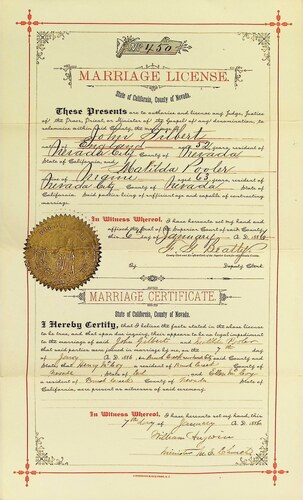 No. 450
MARRIAGE LICENSE.
State of California, County of Nevada.
These Presents are to authorize and license any Judge, Justice
of the Peace, Priest, or Minister of the Gospel of any denomination, to
solemnize within said County, the marriage of
John Gilbert
of England aged 52 years, resident of
Nevada City County of Nevada
State of California, and Matilda Pooler
of Virginia aged 63 years, resident of
Nevada City County of Nevada State of
California. Said parties being of sufficient age and capable of contracting
marriage.
In Witness Whereof, I have hereunto set my hand and
affixed the Seal of the Superior Court of said County
this 6 day of January A. D. 1886
Deputy Clerk.
MARRIAGE CERTIFICATE.
State of California, County of Nevada.
I Hereby Certify, that I believe the facts stated in the above license
to be true, and that upon due inquiry, there appears to be no legal impediment
to the marriage of said John Gilbert and
that said parties were joined in marriage by me, on the 7th day
of A. D. 1886 in County and
State; that Henry a resident of
County of State of and
a resident of County of Nevada State of
California, are present as witnesses of said ceremony.
In Witness Whereof, I have hereunto set my hand, this
7th day of January A. D. 1886
William
Minister M. E. Church